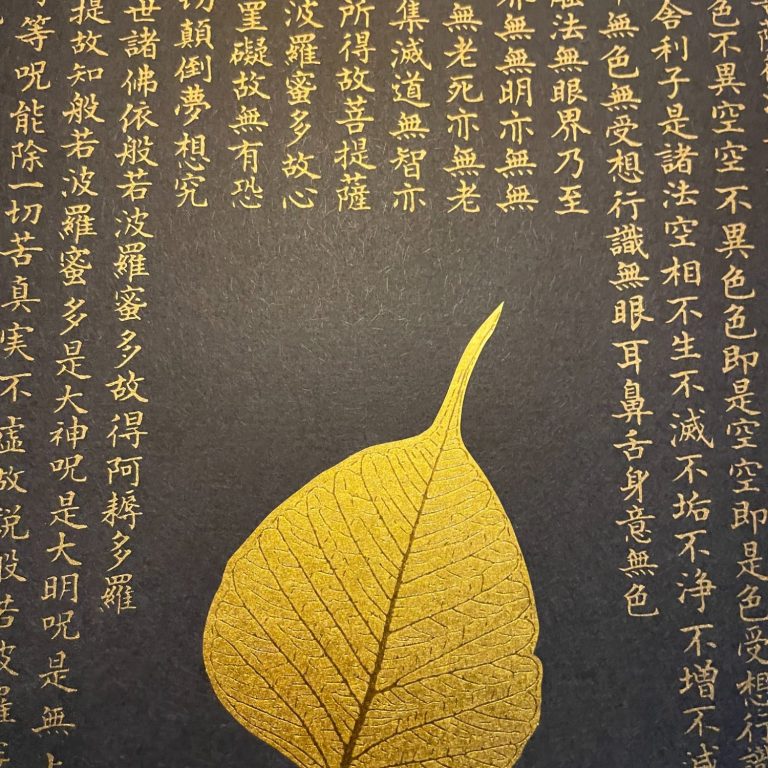 色不異空空不異色色即是空空即是色受想行識
舍利子是諸法空相不生不滅不垢不浄不増不減
無色無受想行識無眼耳鼻舌身意無色
法無眼界乃至
無無明亦無無
無老死亦無老
集滅道無智亦
所得故菩提薩
波羅蜜多故心
罣礙故無有恐
切顛倒夢想究
世諸佛依般若波羅蜜多故得阿耨多羅
提故知般若波羅蜜多是大神呪是大明呪是無
等呪能除一切苦真実不虚故説般若波羅